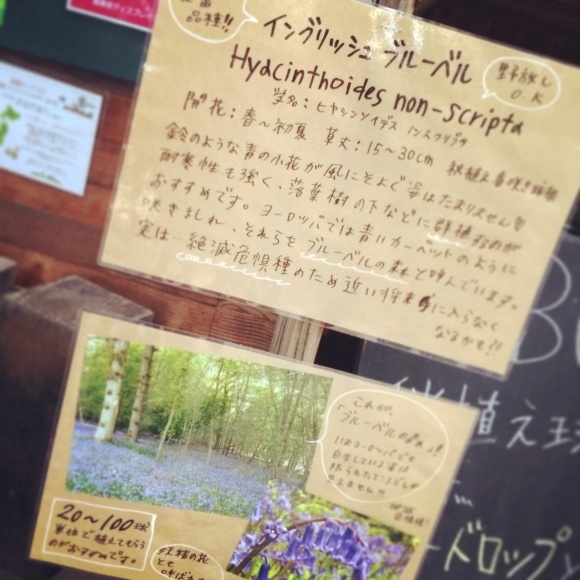 品種!!
イングリッシュ ブルーベル
Hyacinthoides non-scripta
野放し
O.K
学名:ヒヤシンソイデス ノンスクリプタ
開花:春~初夏 草丈:15~30cm 秋植え春咲き球根
鈴のような青の小花が風にそよぐ姿はたまりません
耐寒性も強く、落葉樹の下などに群植するのが
おすすめです。ヨーロッパでは青いカーペットのように
咲きほこれ、それらをブルーベルの森と呼んでいます。
実は…絶滅危惧種のため近い将来手に入らなく
なるかも!!
これが、
ブルーベルの森っ!
今はヨーロッパでも
自生している姿は
限られたところでしか
見えません!!
20~100球
単位で植えてもらう
のがおすすめです。
妖精の花
とも
呼ばれ
植え球
ードロップ